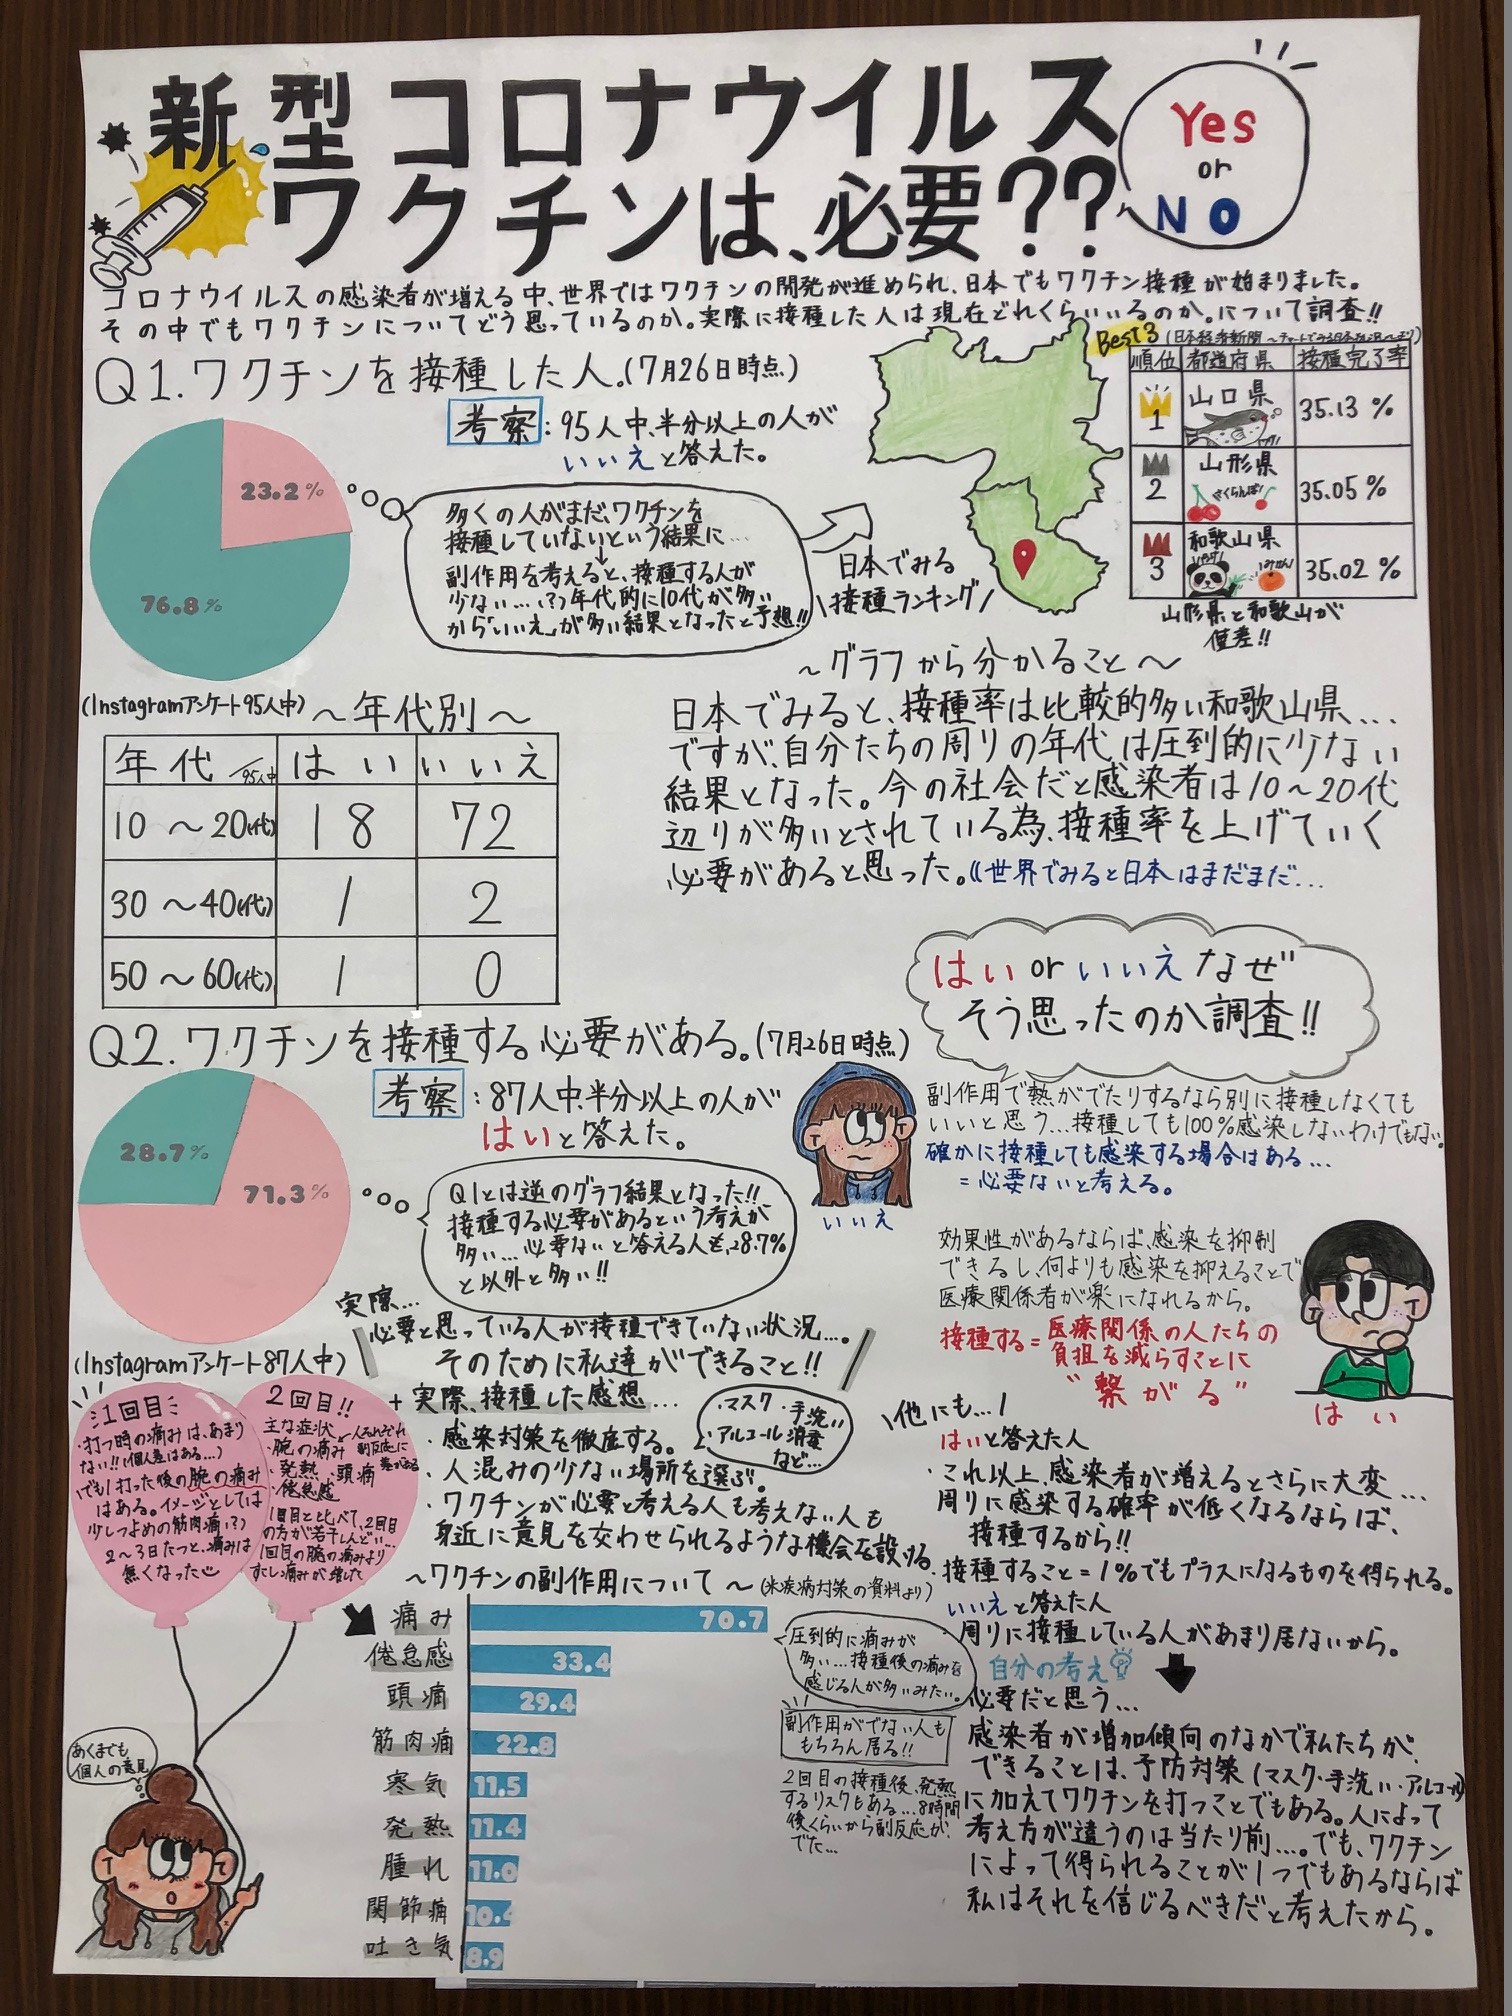 新型コロナウイルス
ワクチンは、必要??
Yes
or
NO
コロナウイルスの感染者が増える中、世界ではワクチンの開発が進められ、日本でもワクチン接種が始まりました。
その中でもワクチンについてどう思っているのか。実際に接種した人は現在どれくらいいるのか。について調査!!
Q1.ワクチンを接種した人。(7月26日時点)
考察:95人中、半分以上の人が
いいえと答えた。
23.2%
76.8%
多くの人がまだ、ワクチンを
接種していないという結果に…
↓
副作用を考えると、接種する人が
少ない…(?)年代的に10代が多い
から「いいえ」が多い結果となったと予想!!
日本でみる
接種ランキング
Best3
順位 都道府県 接種完了率
1 山口県 35.13%
2 山形県 35.05%
さくらんぼ!
3 和歌山県 35.02%
みかん
山形県と和歌山が
僅差!!
(Instagramアンケート95人中)
~年代別~
年代/95人中 はい いいえ
10~20(代) 18 72
30~40(代) 1 2
50~60(代) 1 0
~グラフから分かること~
日本でみると、接種率は比較的多い和歌山県…
ですが、自分たちの周りの年代は圧倒的に少ない
結果となった。今の社会だと感染者は10~20代
辺りが多いとされている為、接種率を上げていく
必要があると思った。《世界でみると日本はまだまだ…
Q2.ワクチンを接種する必要がある。(7月26日時点)
考察:87人中、半分以上の人が
はいと答えた。
28.7%
71.3%
Q1とは逆のグラフ結果となった!!
接種する必要があるという考えが
多い…必要ないと答える人も、28.7%
と以外と多い!!
(Instagramアンケート87人中)
実際…
必要と思っている人が接種できていない状況…。
そのために私達ができること!!
+実際、接種した感想…
・マスク・手洗い
・アルコール消毒
など…
・感染対策を徹底する。
・人混みの少ない場所を選ぶ。
・ワクチンが必要と考える人も考えない人も
身近に意見を交わせられるような機会を設ける。
1回目
・打つ時の痛みは、あまり
ない!!(個人差はある…)
でも!打った後の腕の痛み
はある。イメージとしては
少しつよめの筋肉痛(?)
2~3日たつと、痛みは
無くなった
2回目!!
主な症状
・腕の痛み
・発熱・頭痛
・倦怠感
人それぞれ
副反応に
差がある
1回目と比べて、2回目
の方が若干しんどい…
1回目の腕の痛みより
すこし痛みが増した
あくまでも
個人の意見
~ワクチンの副作用について~(米疾病対策の資料より)
痛み 70.7
倦怠感 33.4
頭痛 29.4
筋肉痛 22.8
寒気 11.5
発熱 11.4
腫れ 11.0
関節痛 10.4
吐き気 8.9
圧倒的に痛みが
多い…接種後の痛みを
感じる人が多いみたい。
副作用がでない人も
もちろん居る!!
2回目の接種後、発熱
するリスクもある…8時間
後くらいから副反応が
でた…
はいorいいえなぜ
そう思ったのか調査!!
副作用で熱がでたりするなら別に接種しなくても
いいと思う…接種しても100%感染しないわけでもない。
確かに接種しても感染する場合はある…
=必要ないと考える。
いいえ
効果性があるならば、感染を抑制
できるし、何よりも感染を抑えることで
医療関係者が楽になれるから。
接種する=医療関係の人たちの
負担を減らすことに
"繋がる"
はい
他にも…!
はいと答えた人
・これ以上、感染者が増えるとさらに大変…
周りに感染する確率が低くなるならば、
接種するから!!
接種すること=1%でもプラスになるものを得られる。
いいえと答えた人
周りに接種している人があまり居ないから。
自分の考え
必要だと思う…
感染者が増加傾向のなかで私たちが、
できることは、予防対策(マスク・手洗い・アルコール)
に加えてワクチンを打つことでもある。人によって
考え方が違うのは当たり前…。でも、ワクチン
によって得られることが1つでもあるならば
私はそれを信じるべきだと考えたから。